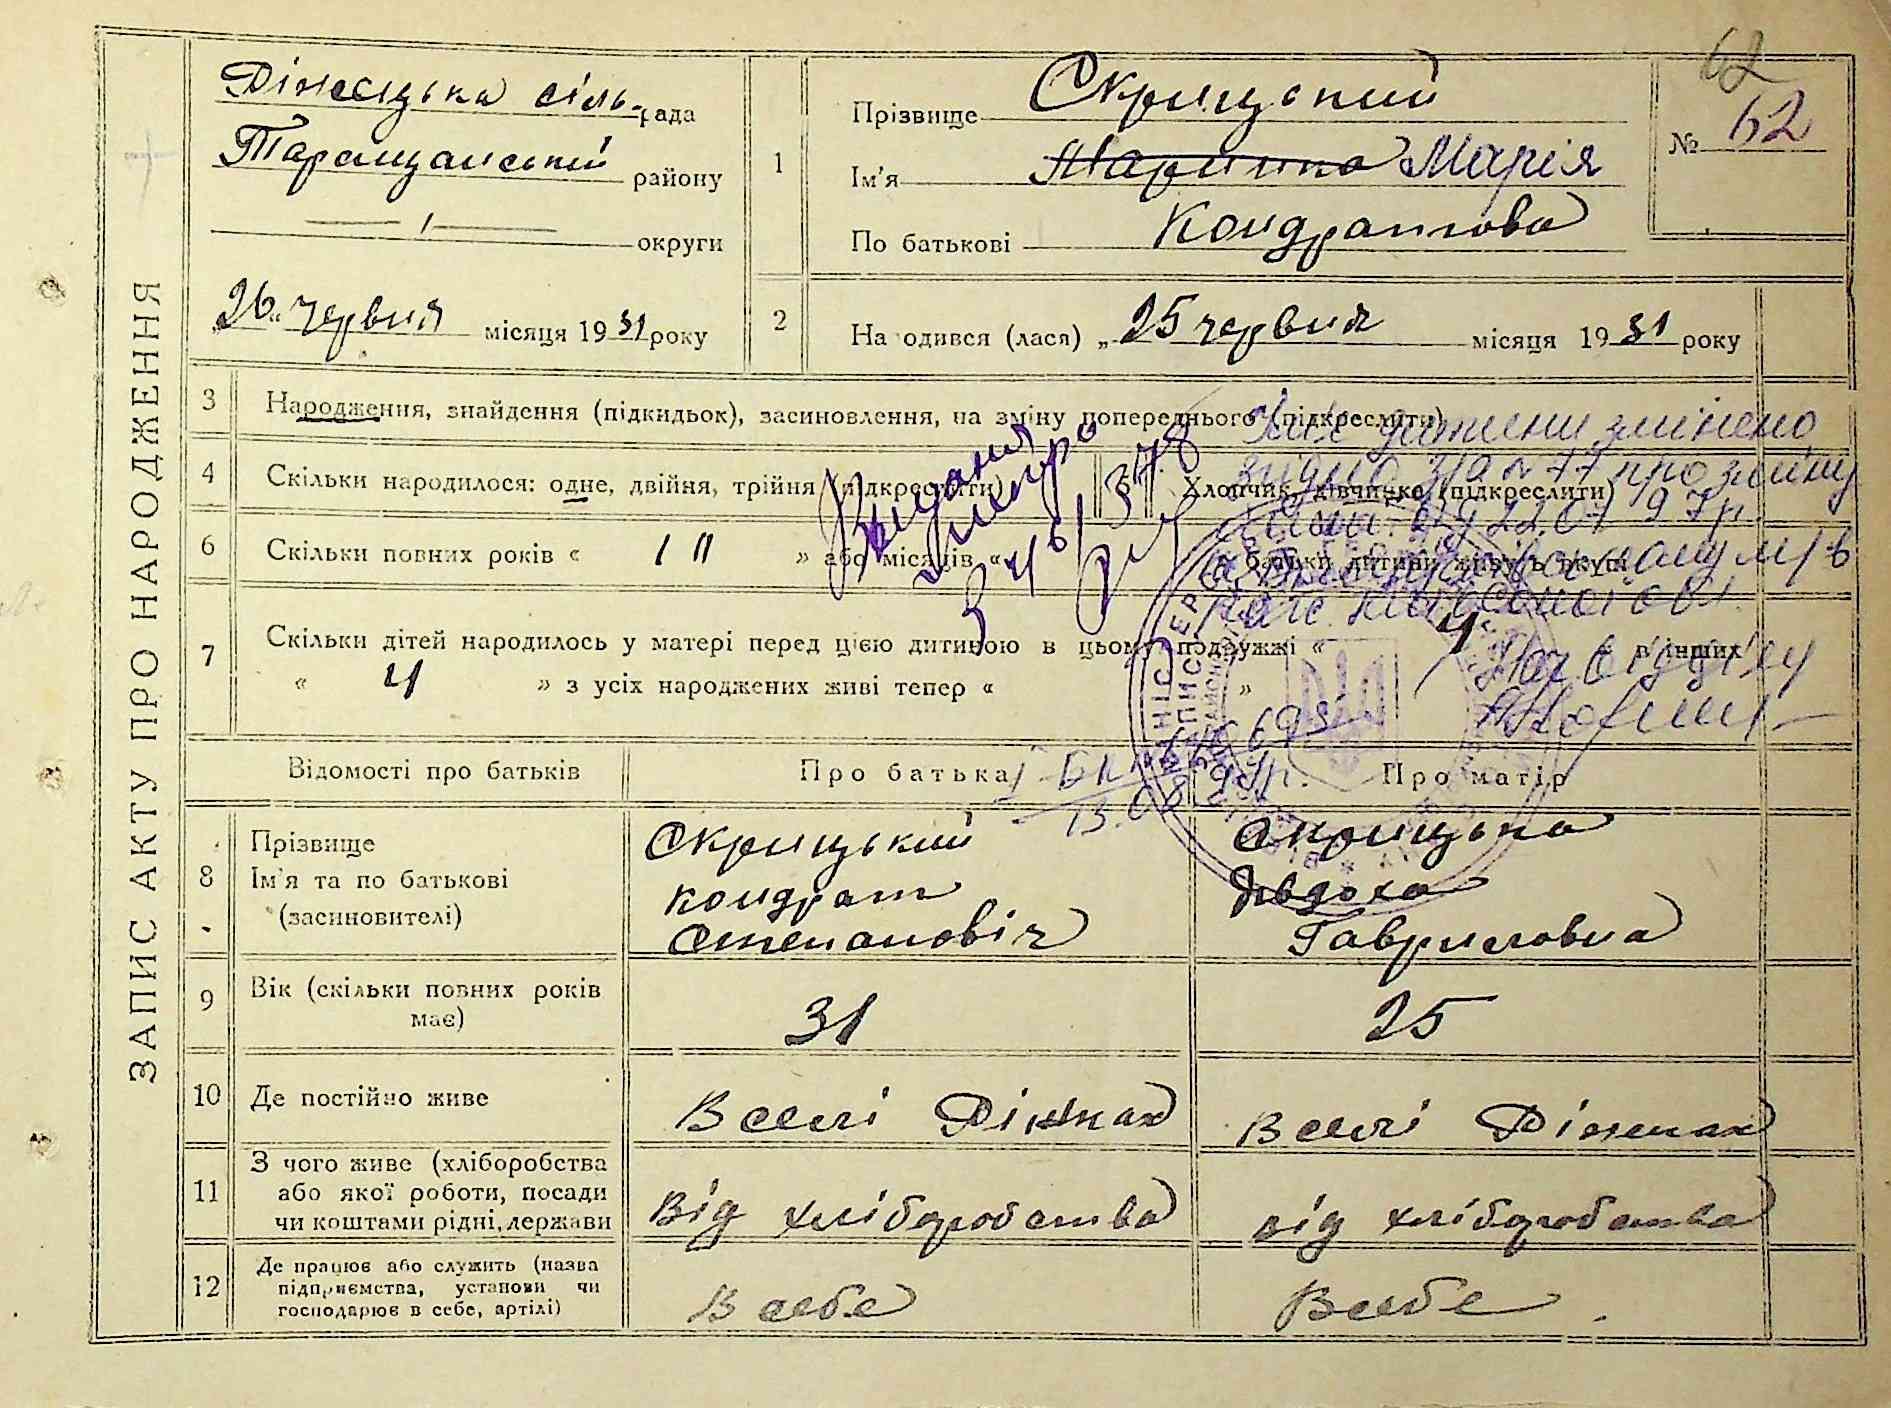 62
ЗАПИС АКТУ ПРО НАРОДЖЕННЯ
сіль-рада
Таращанський району
— / — округи
26 червня місяця 1931 року
1
Прізвище Скрицький
Ім'я Маринка Марія
По батькові Кондратова
№ 62
2
Народився (лася) „25 червня місяця 1931 року
3 Народження, знайдення (підкидьок), засиновлення, на зміну попереднього (підкреслити)
4 Скільки народилося: одне, двійня, трійня (підкреслити)
5 Хлопчик, дівчинка (підкреслити)
6 Скільки повних років « 1 11 » або місяців « батьки дитини живуть вкупі
7 Скільки дітей народилось у матері перед цією дитиною в цьому подружжі « 4 в інших
« 4 » з усіх народжених живі тепер « »
Ім'я дитини змінено
згідно з/а №77 про зміну
імені від 22.07.97р
Відомості про батьків
Про батька
Про матір
8 Прізвище
Ім'я та по батькові
(засиновителі)
Скрицький
Кондрат
Степановіч
Скрицька
Явдоха
Гавриловна
9 Вік (скільки повних років
має)
31
25
10 Де постійно живе
В селі
В селі
11 З чого живе (хліборобства
або якої роботи, посади
чи коштами рідні, держави
Від хліборобства
від хліборобства
12 Де працює або служить (назва
підприємства, установи чи
господарює в себе, артілі)
В себе
В себе